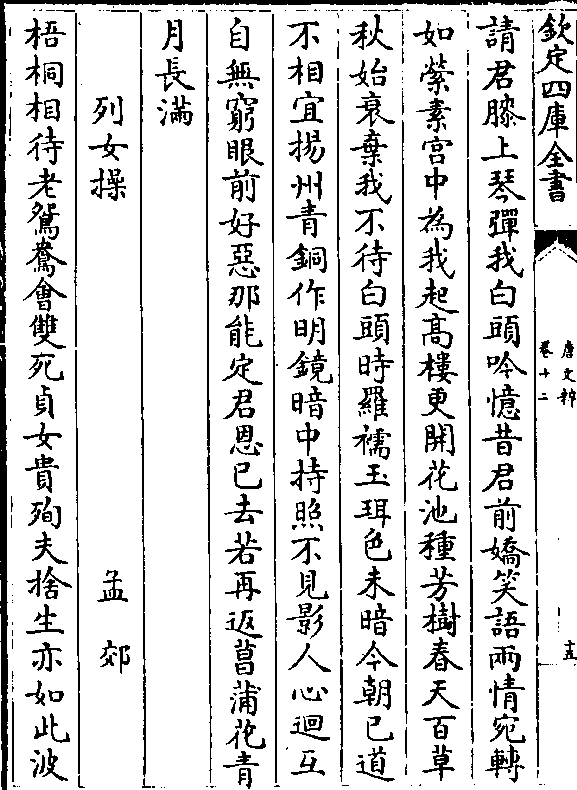 欽定四庫全書
唐文粹
卷十二
十五
請君膝上琴彈我白頭吟憶昔君前嬌笑語兩情宛轉
如縈素宫中為我起髙樓更開花池種芳樹春天百草
秋始衰棄我不待白頭時羅襦玉珥色未暗今朝已道
不相宜揚州青銅作明鏡暗中持照不見影人心迴互
自無窮眼前好惡那能定君恩已去若再返菖蒲花青
月長滿
列女操 孟郊
梧桐相待老鴛鴦會雙死貞女貴殉夫捨生亦如此波